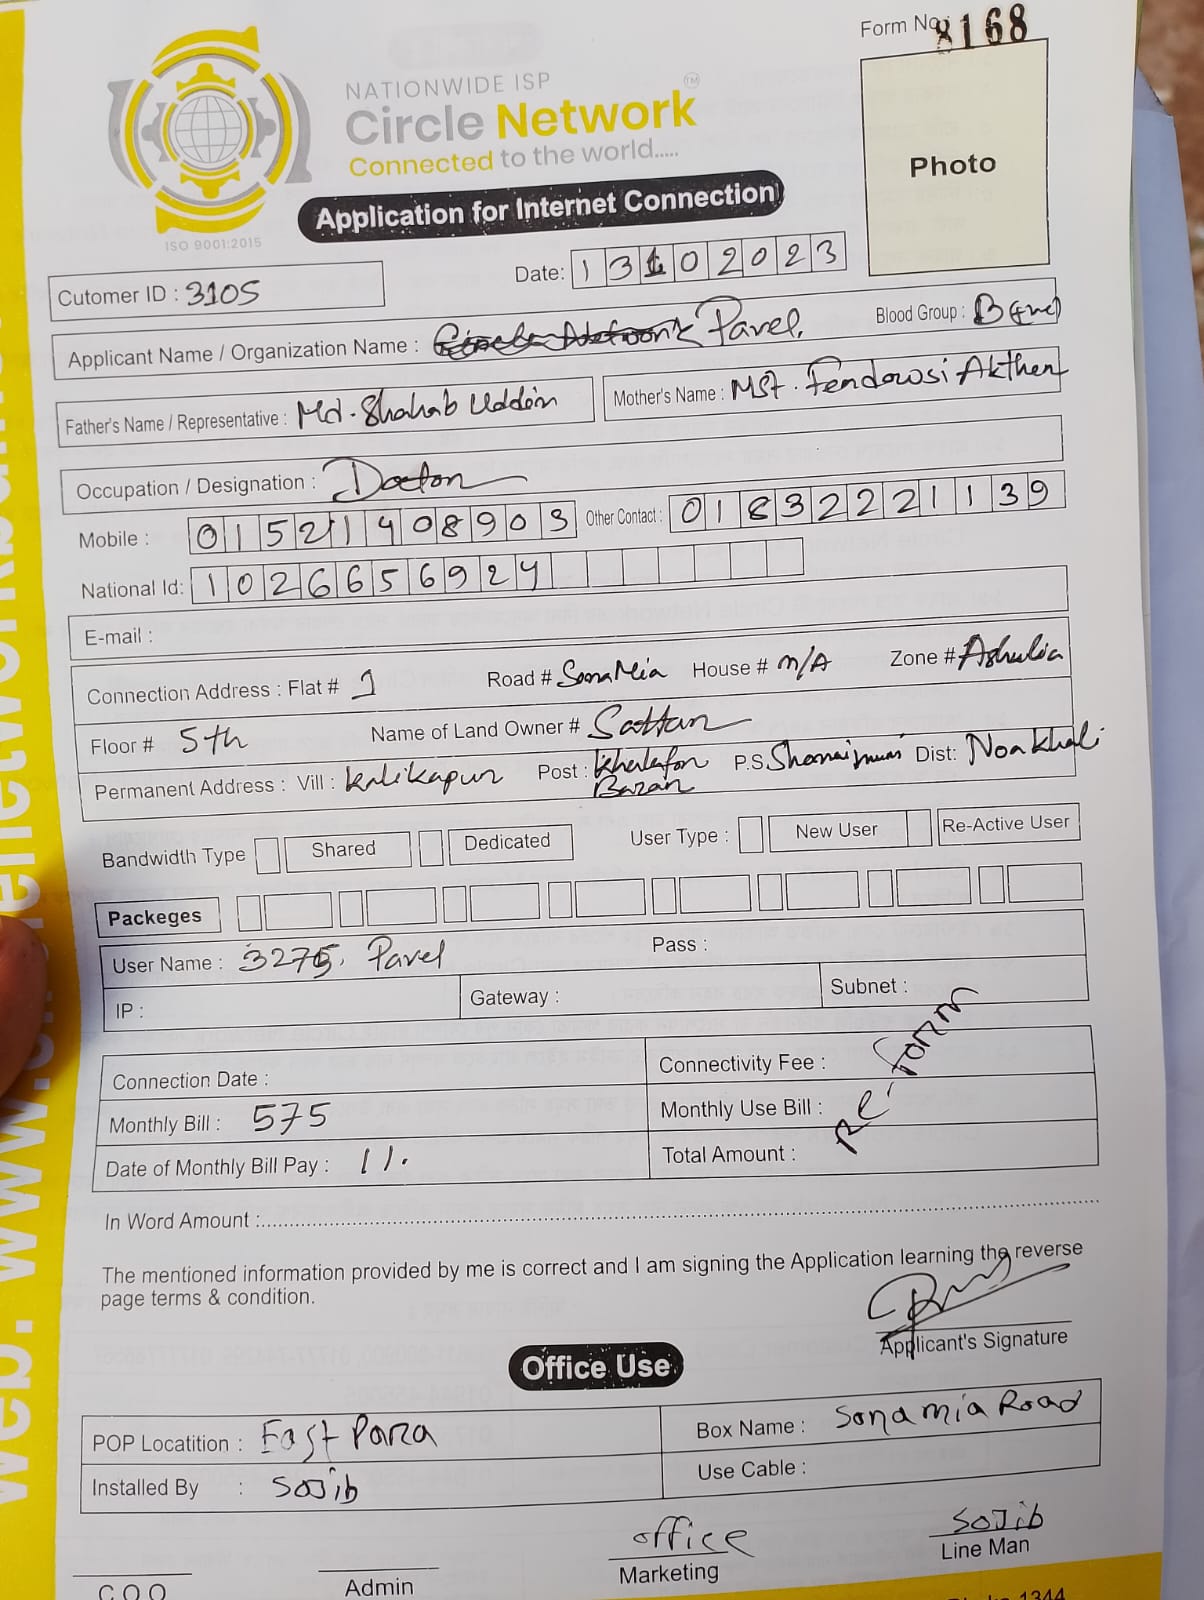 Form No: 8168
NATIONWIDE ISP
Circle Network TM
Connected to the world.....
ISO 9001:2015
Photo
Application for Internet Connection
Cutomer ID : 3105
Date: 13102023
Applicant Name / Organization Name : Circle Network Pavel. Blood Group : B (+ve)
Father's Name / Representative : Md. Shahab Uddin Mother's Name : MST. Ferdowsi Akther
Occupation / Designation : Doctor
Mobile : 01521408903 Other Contact : 01832221139
National Id: 1026656924
E-mail :
Connection Address : Flat # 1 Road # Sona Mia House # N/A Zone # Ashulia
Floor # 5th Name of Land Owner # Sattar
Permanent Address : Vill : Kalikapur Post : Khalafor Bazar P.S Shonaimuri Dist: Noakhali
Bandwidth Type Shared Dedicated User Type : New User Re-Active User
Packeges
User Name : 3275. Pavel Pass :
IP : Gateway : Subnet :
Connection Date : Connectivity Fee :
Monthly Bill : 575 Monthly Use Bill :
Date of Monthly Bill Pay : 11. Total Amount :
Re-Form
In Word Amount :
The mentioned information provided by me is correct and I am signing the Application learning the reverse
page terms & condition.
Applicant's Signature
Office Use
POP Locatition : East Para Box Name : Sona mia Road
Installed By : Sojib Use Cable :
office Sojib
C.O.O Admin Marketing Line Man
1344